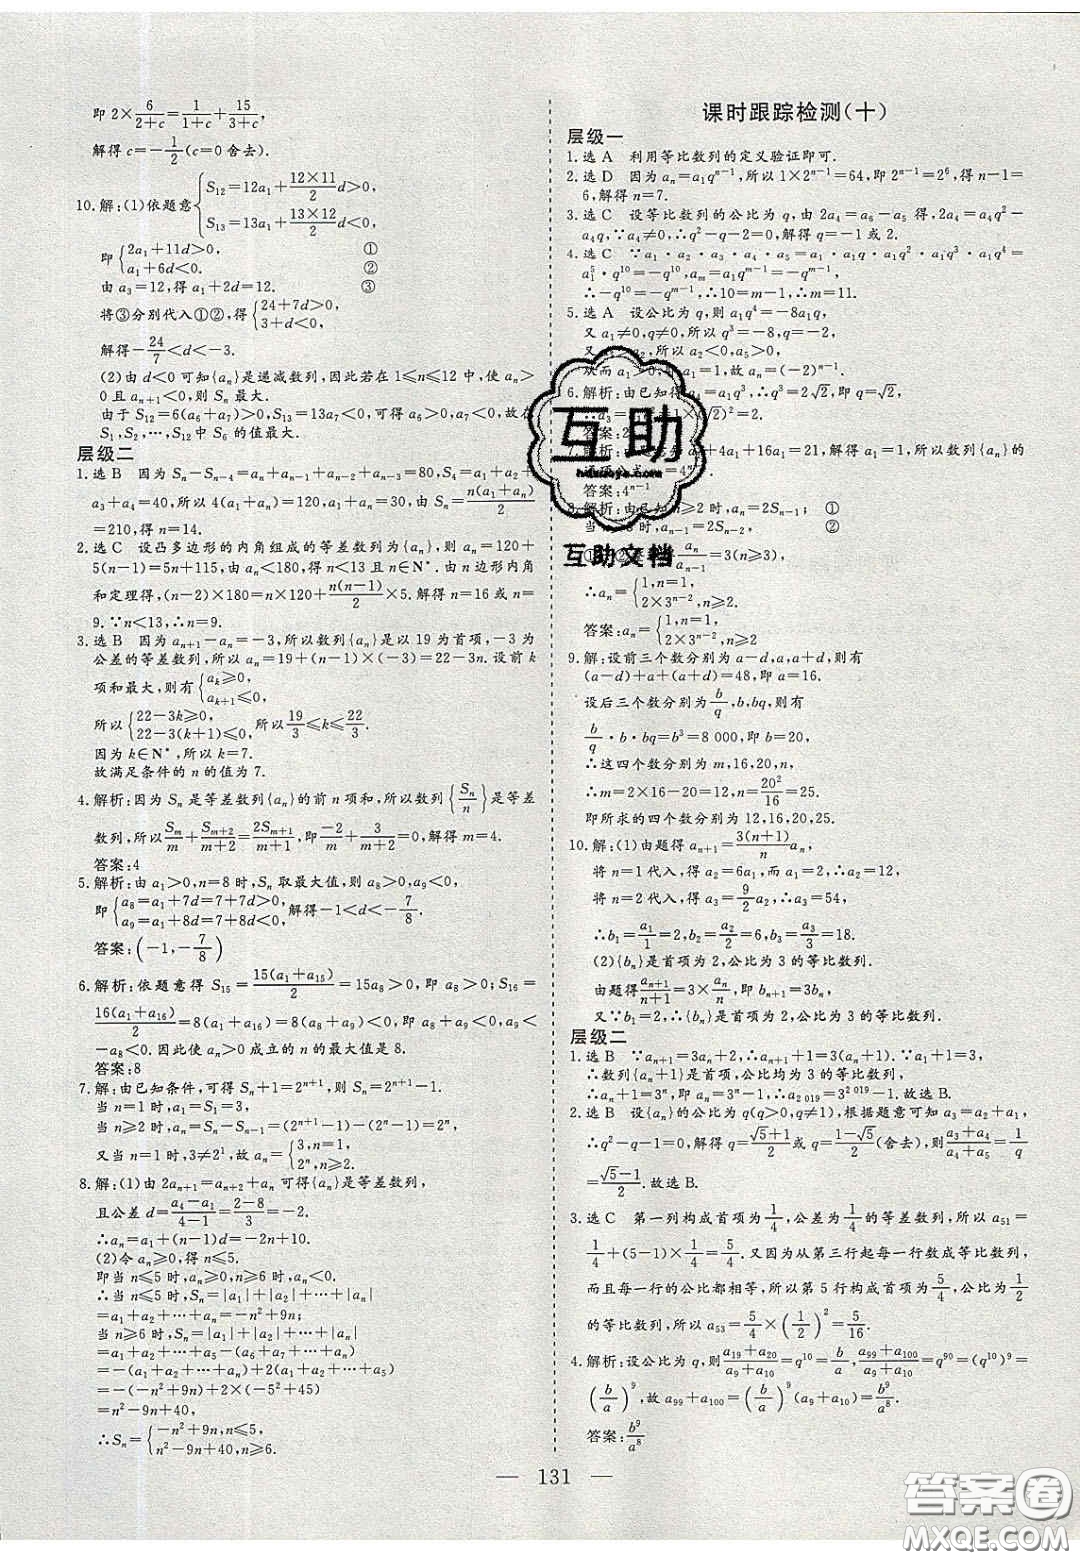 即 2×6/(2+c)=1/(1+c)+15/(3+c),
解得 c=-1/2(c=0 舍去).
10.解:(1)依题意{S₁₂=12a₁+(12×11)/2 d>0,
S₁₃=13a₁+(13×12)/2 d<0,
即{2a₁+11d>0, ①
a₁+6d<0. ②
由 a₃=12,得 a₁+2d=12. ③
将③分别代入①②,得{24+7d>0,
3+d<0,
解得-24/7<d<-3.
(2)由 d<0 可知{aₙ}是递减数列,因此若在 1≤n≤12 中,使 aₙ>
0且 aₙ₊₁<0,则 Sₙ 最大.
由于 S₁₂=6(a₆+a₇)>0,S₁₃=13a₇<0,可得 a₆>0,a₇<0,故在
S₁,S₂,…,S₁₂中 S₆ 的值最大.
层级二
1.选 B 因为 Sₙ-Sₙ₋₄=aₙ+aₙ₋₁+aₙ₋₂+aₙ₋₃=80,S₄=a₁+a₂+
a₃+a₄=40,所以 4(a₁+aₙ)=120,a₁+aₙ=30,由 Sₙ=n(a₁+aₙ)/2
=210,得 n=14.
2.选 C 设凸多边形的内角组成的等差数列为{aₙ},则 aₙ=120+
5(n-1)=5n+115,由 aₙ<180,得 n<13 且 n∈N*,由 n 边形内角
和定理得,(n-2)×180=n×120+n(n-1)/2×5.解得 n=16或 n=
9.∵n<13,∴n=9.
3.选 B 因为 aₙ₊₁-aₙ=-3,所以数列{aₙ}是以 19 为首项,-3 为
公差的等差数列,所以 aₙ=19+(n-1)×(-3)=22-3n.设前 k
项和最大,则有{aₖ≥0,
aₖ₊₁≤0,
所以{22-3k≥0,
22-3(k+1)≤0, 所以 19/3≤k≤22/3.
因为 k∈N*,所以 k=7.
故满足条件的 n 的值为 7.
4.解析:因为 Sₙ 是等差数列{aₙ}的前 n 项和,所以数列{Sₙ/n}是等差
数列,所以Sₘ/m+Sₘ₊₂/(m+2)=2Sₘ₊₁/(m+1),即-2/m+3/(m+2)=0,解得 m=4.
答案:4
5.解析:由 a₁>0,n=8 时,Sₙ 取最大值,则 a₈>0,a₉<0,
即{a₈=a₁+7d=7+7d>0,
a₉=a₁+8d=7+8d<0, 解得-1<d<-7/8.
答案:(-1,-7/8)
6.解析:依题意得 S₁₅=15(a₁+a₁₅)/2=15a₈>0,即 a₈>0;S₁₆=
16(a₁+a₁₆)/2=8(a₁+a₁₆)=8(a₈+a₉)<0,即 a₈+a₉<0,a₉<
-a₈<0.因此使 aₙ>0成立的 n 的最大值是 8.
答案:8
7.解:由已知条件,可得 Sₙ+1=2ⁿ⁺¹,则 Sₙ=2ⁿ⁺¹-1.
当 n=1 时,a₁=S₁=3,
当 n≥2 时,aₙ=Sₙ-Sₙ₋₁=(2ⁿ⁺¹-1)-(2ⁿ-1)=2ⁿ,
又当 n=1 时,3≠2¹,故 aₙ={3,n=1,
2ⁿ,n≥2.
8.解:(1)由 2aₙ₊₁=aₙ₊₂+aₙ 可得{aₙ}是等差数列,
且公差 d=(a₄-a₁)/(4-1)=(2-8)/3=-2.
∴aₙ=a₁+(n-1)d=-2n+10.
(2)令 aₙ≥0,得 n≤5.
即当 n≤5 时,aₙ≥0,n≥6 时,aₙ<0.
∴当 n≤5 时,Sₙ=|a₁|+|a₂|+…+|aₙ|
=a₁+a₂+…+aₙ=-n²+9n;
当 n≥6 时,Sₙ=|a₁|+|a₂|+…+|aₙ|
=a₁+a₂+…+a₅-(a₆+a₇+…+aₙ)
=-(a₁+a₂+…+aₙ)+2(a₁+a₂+…+a₅)
=-(-n²+9n)+2×(-5²+45)
=n²-9n+40,
∴Sₙ={-n²+9n,n≤5,
n²-9n+40,n≥6.
课时跟踪检测(十)
层级一
1.选 A 利用等比数列的定义验证即可.
2.选 D 因为 aₙ=a₁qⁿ⁻¹,所以 1×2ⁿ⁻¹=64,即 2ⁿ⁻¹=2⁶,得 n-1=
6,解得 n=7.
3.选 C 设等比数列的公比为 q,由 2a₄=a₆-a₅ 得,2a₄=a₄q²-
a₄q,∵a₄≠0,∴q²-q-2=0,解得 q=-1 或 2.
4.选 C ∵a₁·a₂·a₃·a₄·a₅=a₁·a₁q·a₁q²·a₁q³·a₁q⁴=
a₁⁵·q¹⁰=-q¹⁰,aₘ=a₁qᵐ⁻¹=-qᵐ⁻¹,
∴-q¹⁰=-qᵐ⁻¹,∴10=m-1,∴m=11.
5.选 A 设公比为 q,则 a₁q⁴=-8a₁q,
又 a₁≠0,q≠0,所以 q³=-8,q=-2,
又 a₅ a₂,所以 a₂<0,a₅>0,
从而 a₁>0,即 a₁=1,故 aₙ=(-2)ⁿ⁻¹.
6.解析:由已知得 ∴q³=2√2,即 q=√2,
∴a₃=a₁q²=1×(√2)²=2.
答案:2
a₁+4a₁+16a₁=21,解得 a₁=1,所以{aₙ}的
通项公式 =4ⁿ⁻¹
答案:4ⁿ⁻¹
8.解析:由已知 n≥2 时,aₙ=2Sₙ₋₁; ①
时,aₙ₋₁=2Sₙ₋₂, ②
aₙ/aₙ₋₁=3(n≥3),
∴aₙ={1,n=1,
2×3ⁿ⁻²,n≥2.
答案:aₙ={1,n=1,
2×3ⁿ⁻²,n≥2
9.解:设前三个数分别为 a-d,a,a+d,则有
(a-d)+a+(a+d)=48,即 a=16.
设后三个数分别为 b/q,b,bq,则有
b/q·b·bq=b³=8 000,即 b=20,
∴这四个数分别为 m,16,20,n,
∴m=2×16-20=12,n=20²/16=25.
即所求的四个数分别为 12,16,20,25.
10.解:(1)由题得 aₙ₊₁=3(n+1)/n aₙ,
将 n=1 代入,得 a₂=6a₁,而 a₁=2,∴a₂=12,
将 n=2 代入,得 a₃=9/2 a₂,∴a₃=54,
∴b₁=a₁/1=2,b₂=a₂/2=6,b₃=a₃/3=18.
(2){bₙ}是首项为 2,公比为 3 的等比数列.
由题得aₙ₊₁/(n+1)=3×aₙ/n,即 bₙ₊₁=3bₙ,
又∵b₁=2,∴{bₙ}是首项为 2,公比为 3 的等比数列.
层级二
1.选 B ∵aₙ₊₁=3aₙ+2,∴aₙ₊₁+1=3(aₙ+1).∵a₁+1=3,
∴数列{aₙ+1}是首项,公比均为 3 的等比数列,
∴aₙ+1=3ⁿ,即 aₙ=3ⁿ-1,∴a₂ ₀₁₉=3² ⁰¹⁹-1.故选 B.
2.选 B 设{aₙ}的公比为 q(q>0,q≠1),根据题意可知 a₃=a₂+a₁,
∴q²-q-1=0,解得 q=(√5+1)/2或 q=(1-√5)/2(舍去),则(a₃+a₄)/(a₄+a₅)=1/q
=(√5-1)/2.故选 B.
3.选 C 第一列构成首项为1/4,公差为1/4的等差数列,所以 a₅₁=
1/4+(5-1)×1/4=5/4.又因为从第三行起每一行数成等比数列,
而且每一行的公比都相等,所以第 5 行构成首项为5/4,公比为1/2
的等比数列,所以 a₅₃=5/4×(1/2)²=5/16.
4.解析:设公比为 q,则(a₁₉+a₂₀)/(a₉+a₁₀)=q¹⁰=b/a,(a₉₉+a₁₀₀)/(a₉+a₁₀)=q⁹⁰=(q¹⁰)⁹=
(b/a)⁹,故 a₉₉+a₁₀₀=(b/a)⁹(a₉+a₁₀)=b⁹/a⁸.
答案:b⁹/a⁸
互助
互助文档
— 131 —
答案圈
MXQE.COM